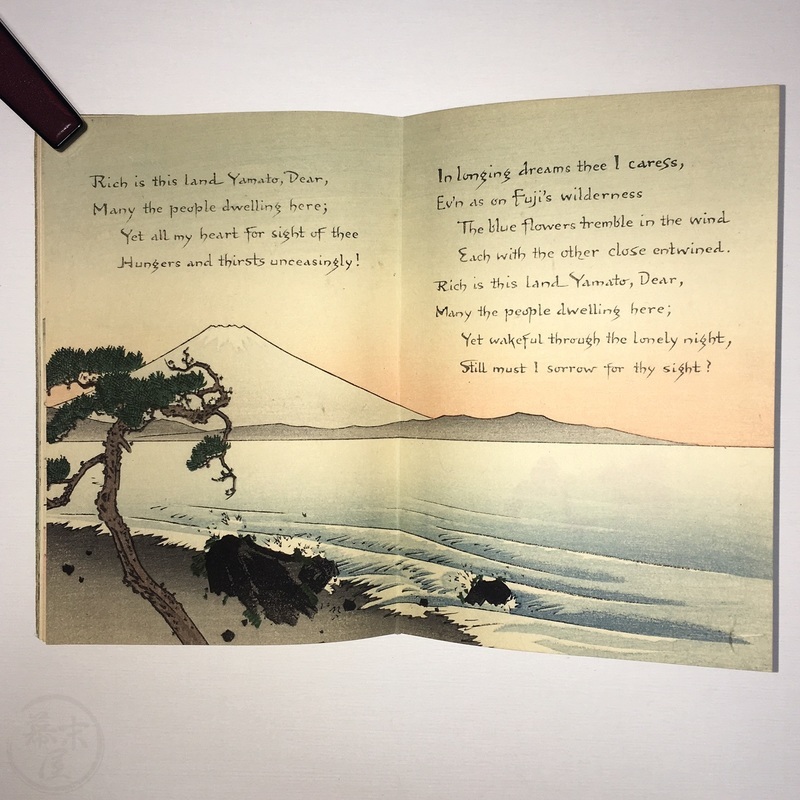 Rich is this land Yamato, Dear,
Many the people dwelling here;
Yet all my heart for sight of thee
Hungers and thirsts unceasingly!
In longing dreams thee I caress,
Ev'n as on Fuji's wilderness
The blue flowers tremble in the wind
Each with the other close entwined.
Rich is this land Yamato, Dear,
Many the people dwelling here;
Yet wakeful through the lonely night,
Still must I sorrow for thy sight?
幕末屋